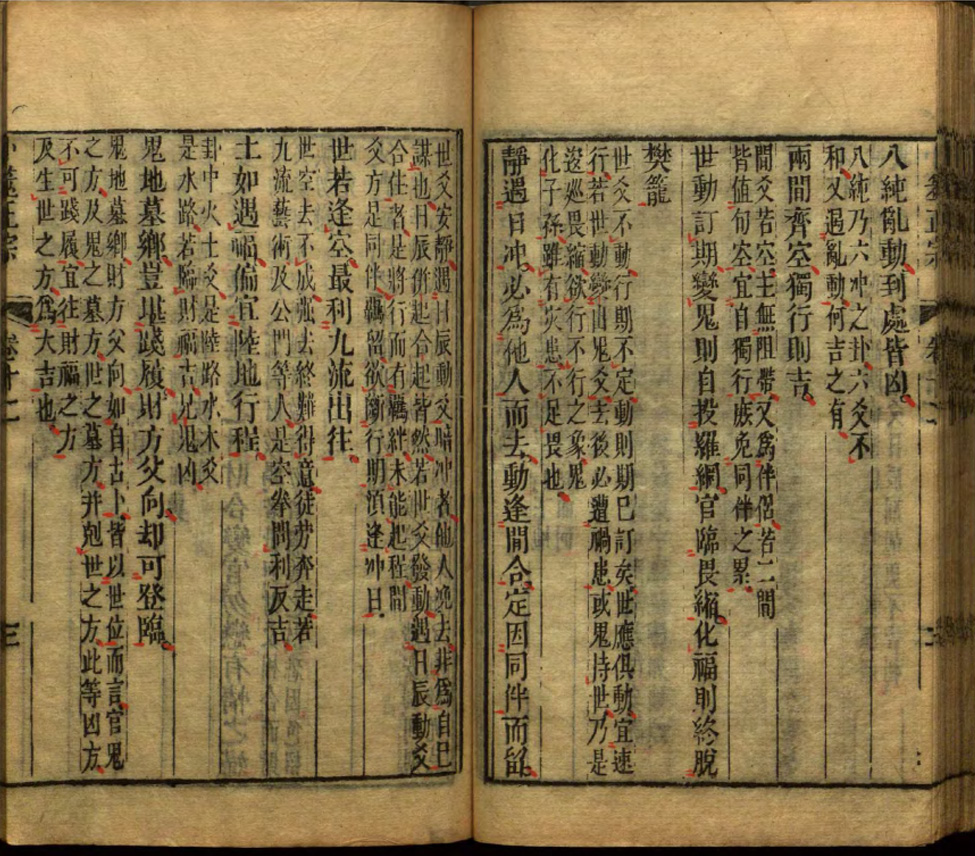 八純亂動到處皆凶
八純乃六冲之卦六爻不
和又遇亂動何吉之有
兩間齊空獨行則吉
間爻若空主無阻滯又爲伴侶若二間
皆值旬空宜自獨行庻免同伴之累
世動訂期變鬼則自投羅網官臨畏縮化福則終脫
樊籠
世爻不動行期不定動則期巳訂矣世應俱動宜速
行若世動變出鬼爻去後必遭禍患或鬼持世乃是
逡廵畏縮欲行不行之象鬼
化子孫雖有灾患不足畏也
靜遇日冲必為他人而去動逢間合定因同伴而留
世爻安靜遇日辰動爻暗冲者他人浼去非爲自巳
謀也日辰併起合起皆然若世爻發動遇日辰動爻
合住者是將行而有羈絆未能起程間
爻方是同伴羈留欲斷行期湏逢冲日
世若逢空最利九流出往
世空去不成強去終難得意徒劳奔走若
九流藝術及公門等人是空拳問利反吉
土如遇福偏宜陸地行程
卦中火土爻是陸路水木爻
是水路若臨財福吉兄鬼凶
鬼地墓鄉豈堪踐履財方父向却可登臨
鬼地墓鄉財方父向如自古卜皆以世位而言官鬼
之方及鬼之墓方世之墓方并剋世之方此等凶方
不可踐履宜往財福之方
及生世之方爲大吉也
卷十二
三